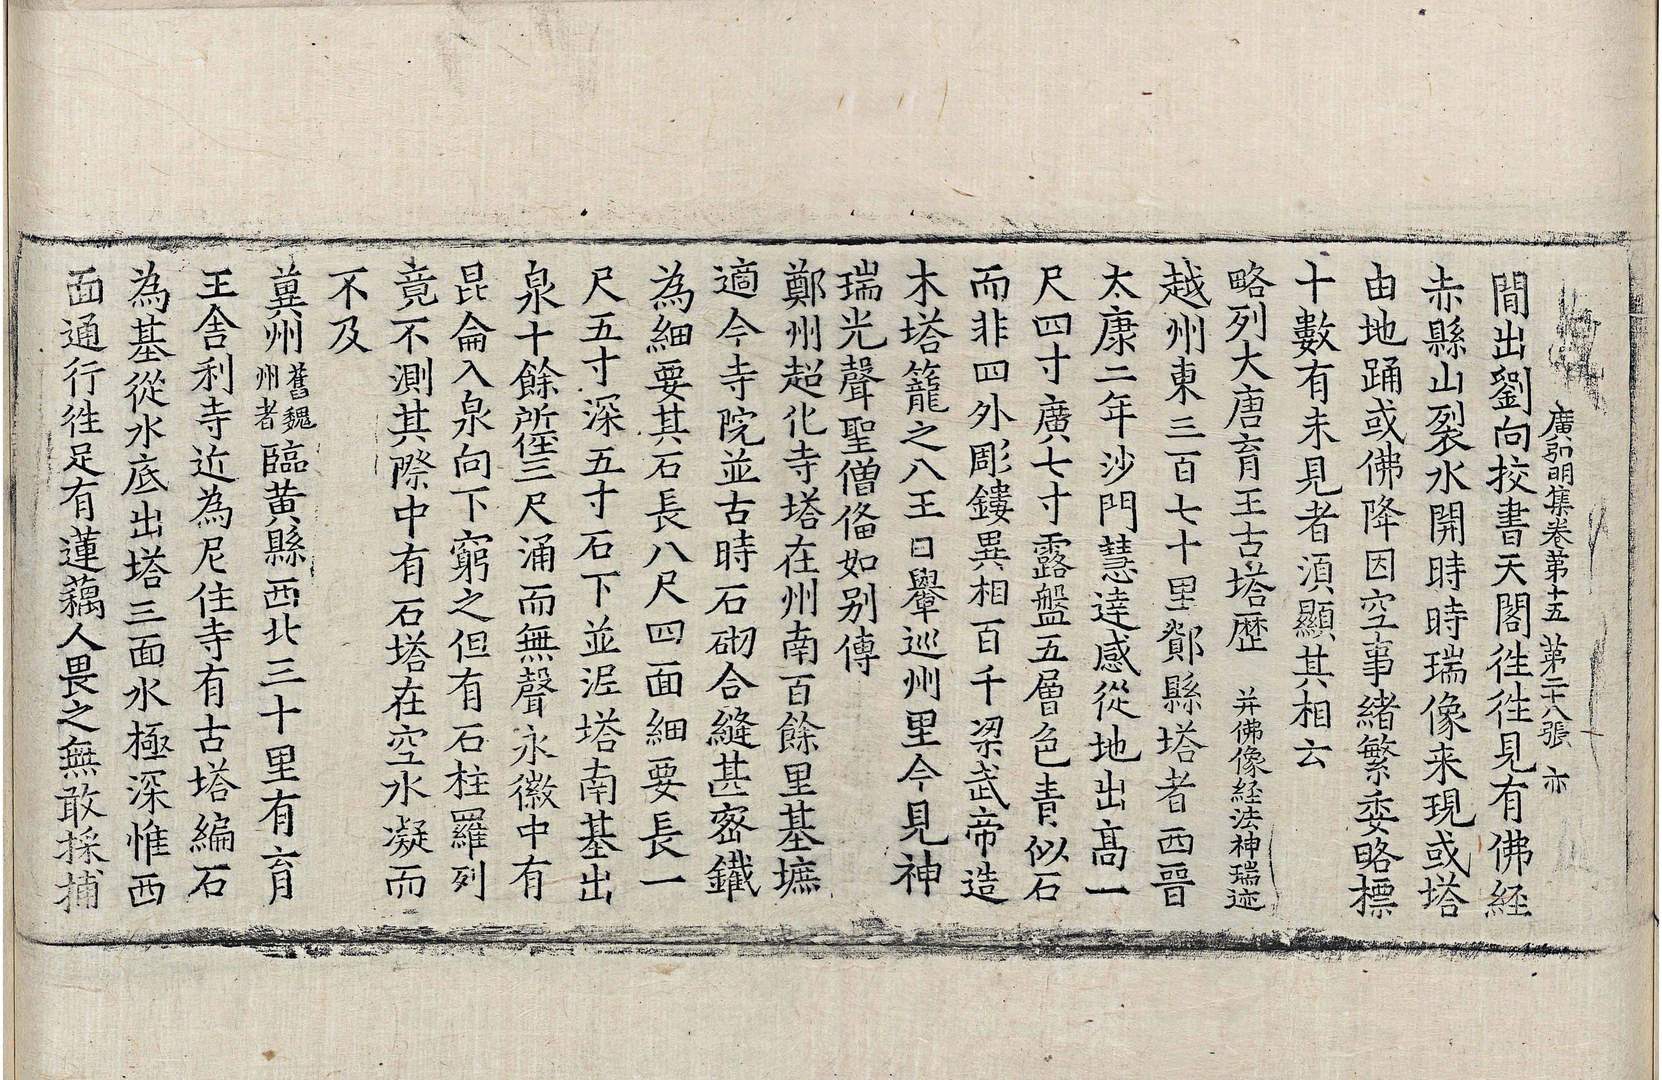 廣弘明集卷第十五 第二十八張 亦
閒出劉向挍書天閣徃徃見有佛経
赤縣山裂水開時時瑞像来現或塔
由地踊或佛降因空事緒繁委略標
十數有未見者湏顯其相云
略列大唐育王古塔歴 并佛像経法神瑞迹
越州東三百七十里鄮縣塔者西晉
太康二年沙門慧達感從地出高一
尺四寸廣七寸露盤五層色青似石
而非四外彫鏤異相百千梁武帝造
木塔籠之八王日轝巡州里今見神
瑞光聲聖僧俻如别傳
鄭州超化寺塔在州南百餘里基墌
適今寺院並古時石砌合縫甚宻鐵
為細要其石長八尺四面細要長一
尺五寸深五寸石下並泥塔南基出
泉十餘所徑三尺涌而無聲永徽中有
昆侖入泉向下窮之但有石柱羅列
竟不測其際中有石塔在空水凝而
不及
兾州舊魏州者臨黄縣西北三十里有育
王舍利寺近為尼住寺有古塔編石
為基從水底出塔三面水極深惟西
面通行徃足有蓮藕人畏之無敢採捕